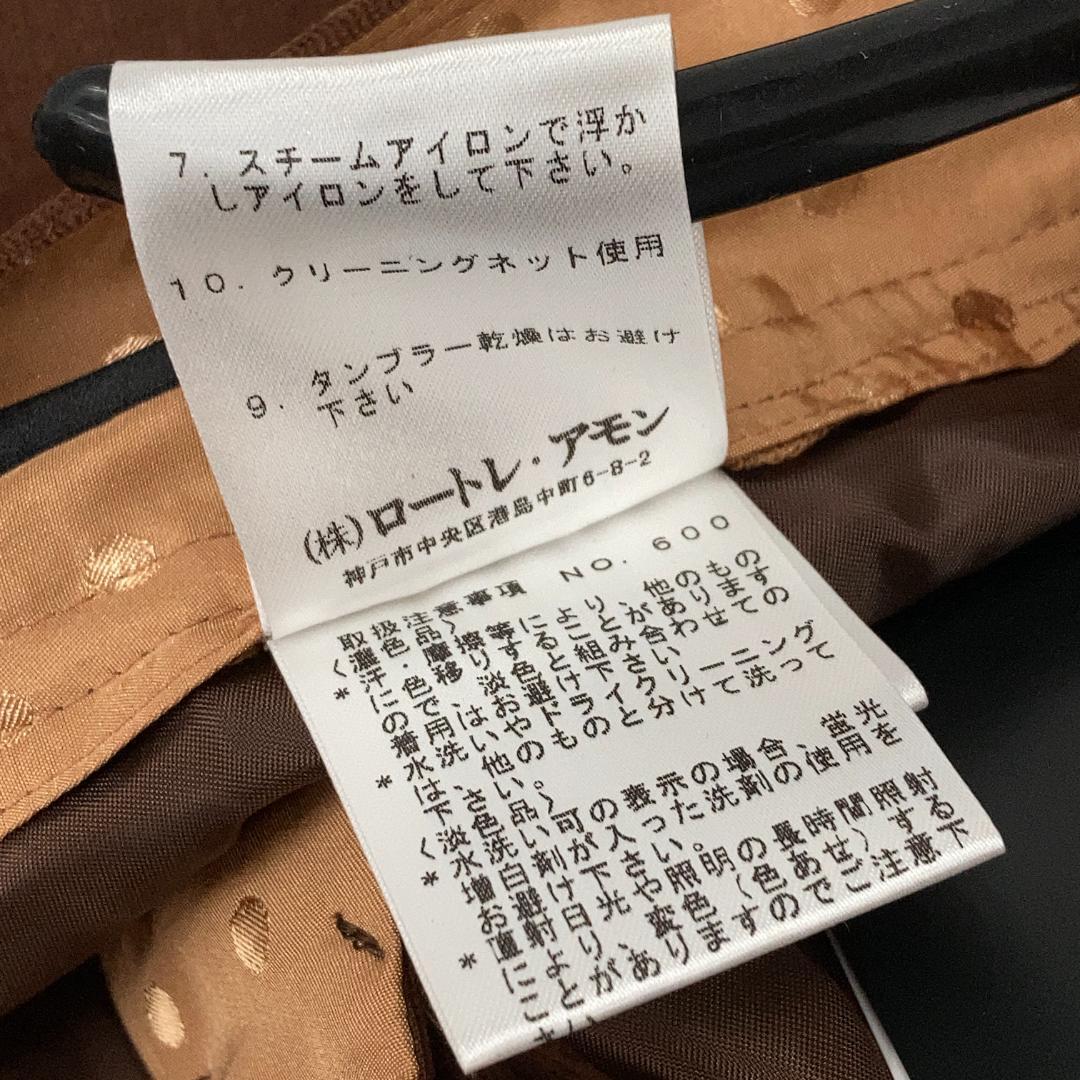 7. スチームアイロンで浮か
しアイロンをして下さい。
10. クリーニングネット使用
9. タンブラー乾燥はお避け
下さい
(株)ロートレ・アモン
神戸市中央区港島中町6-8-2
取扱注意事項 NO. 600
〈濃色品〉
*汗・摩擦等により他のもの
に色移りすることがありますの
で、淡色との組み合わせての
着用はお避け下さい。
*水洗いやドライクリーニング
は、他のものと分けて洗って
下さい。
〈淡色品〉
*水洗い可の表示の場合、蛍光
増白剤が入った洗剤の使用を
お避け下さい。
*直射日光や照明の長時間照射
により、変色(色あせ)する
ことがありますのでご注意下
さい